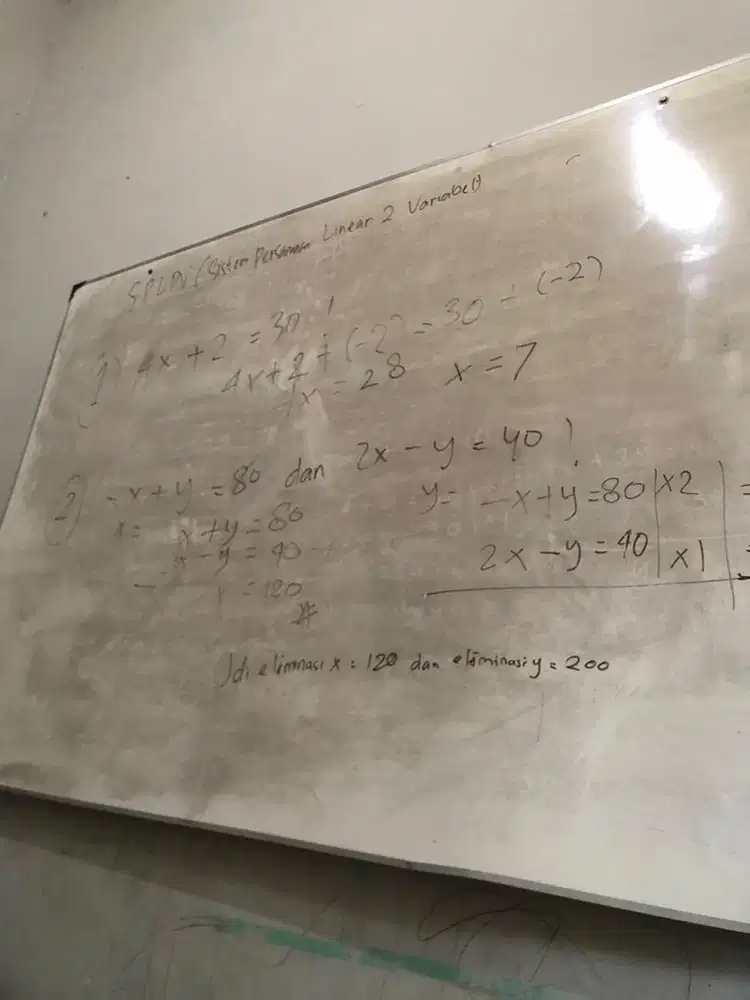 SPLDV (Sistem Persamaan Linear 2 Variabel)
1) 4x + 2 = 30 !
4x + 2 + (-2) = 30 + (-2)
4x = 28 x = 7
2) -x + y = 80 dan 2x - y = 40 !
x = -x + y = 80
2x - y = 40 +
x = 120
y = -x + y = 80 | x2 | =
2x - y = 40 | x1 | =
Jdi eliminasi x = 120 dan eliminasi y = 200